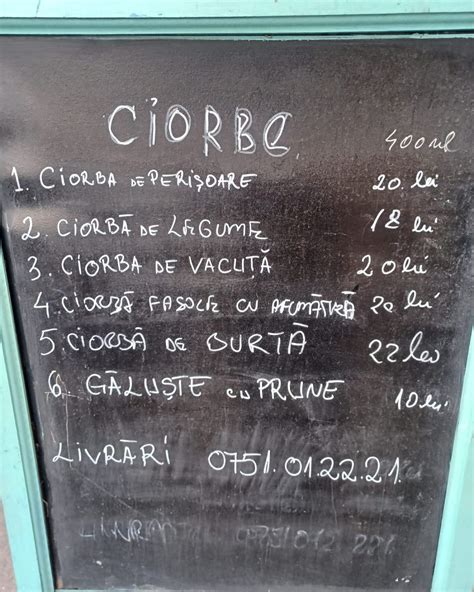 CIORBE
400 ml
1. CIORBA DE PERIȘOARE 20 lei
2. CIORBĂ DE LEGUME 18 lei
3. CIORBA DE VACUȚĂ 20 lei
4. CIORBĂ FASOLE CU AFUMĂTURĂ 20 lei
5. CIORBĂ DE BURTĂ 22 lei
6. GĂLUȘTE CU PRUNE 10 lei
LIVRĂRI 0751.01.22.21.